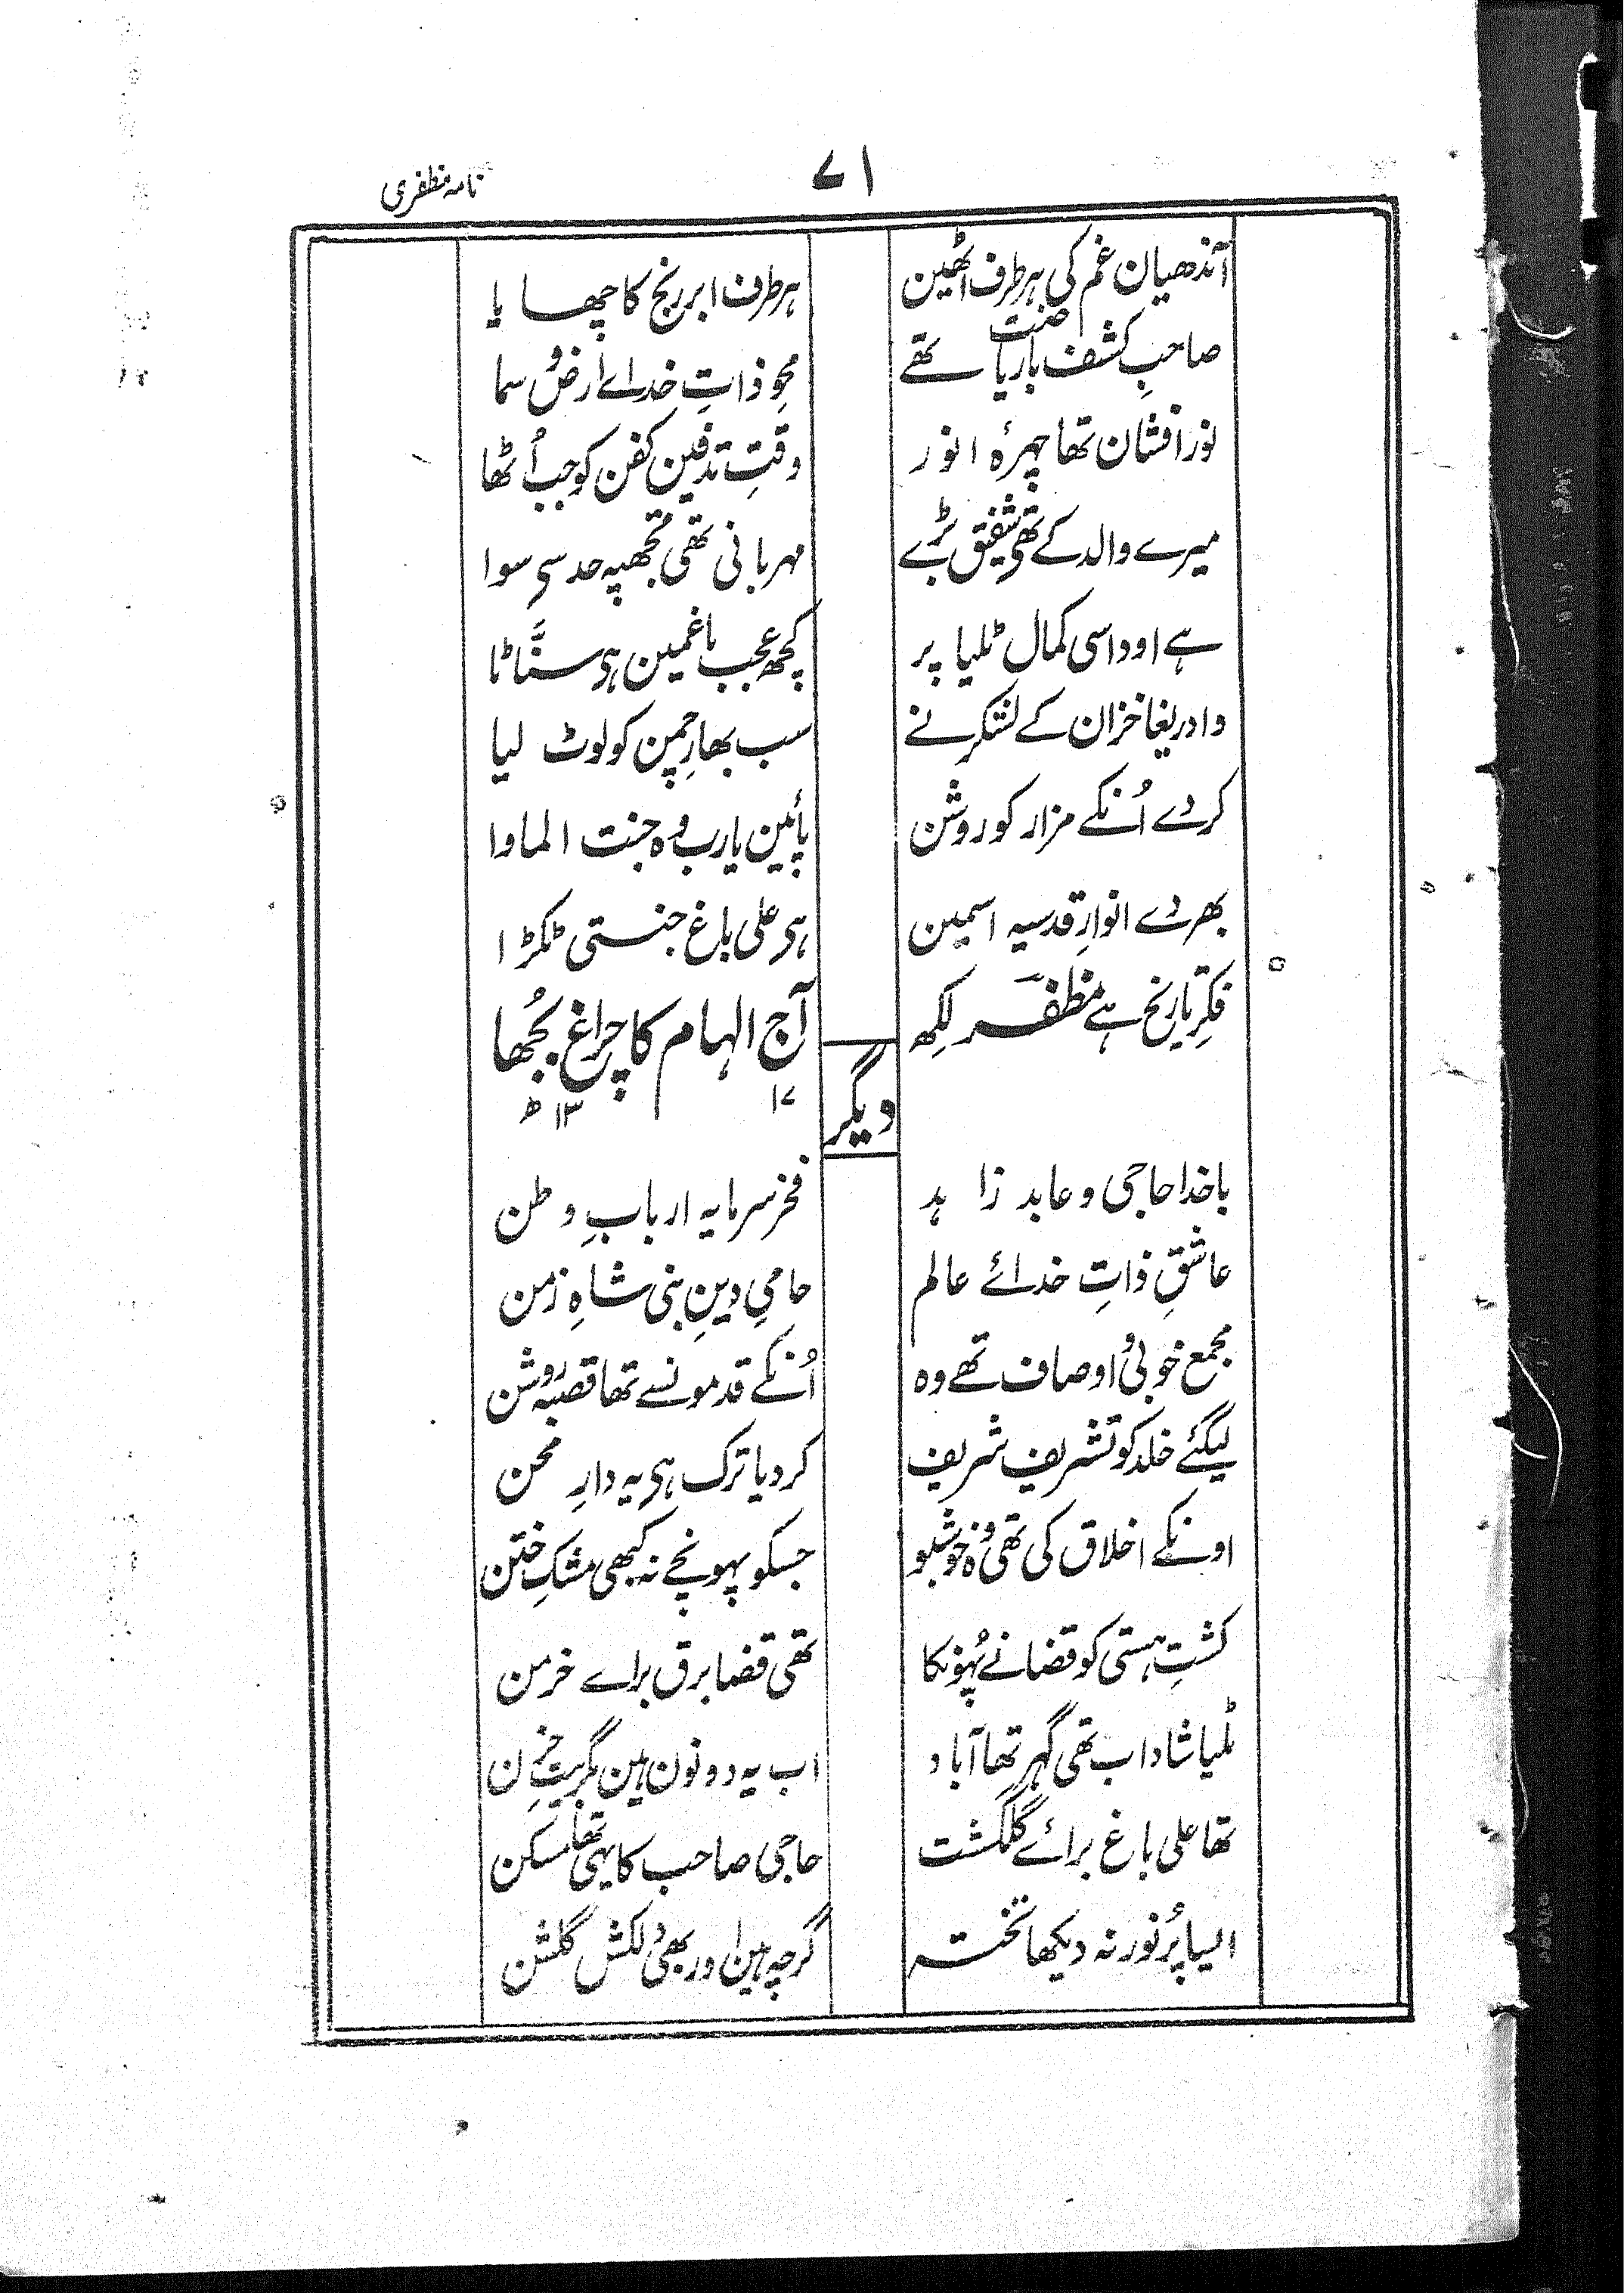 نامہ مظفری
۷۱
آندھیان غم کی ہر طرف اٹھین
ہر طرف ابر رنج کا چھایا
صاحبِ کشف با ریاضت تھے
محوِ ذاتِ خداے ارض و سما
نور افشان تھا چہرۂ انور
وقتِ تدفین کفن کو جب اُٹھا
میرے والد کے تھے شفیق بڑے
مہربانی تھی مُجھپہ حد سے سوا
ہے اوداسی کمال ٹلیا پر
کچھ عجب باغمین ہی سنَّاٹا
وا دریغا خزان کے لشکر نے
سب بھارِ چمن کو لوٹ لیا
کر دے اُنکے مزار کو روشن
پائین یارب وہ جنت الماوا
بھر دے انوارِ قدسیہ اسمین
ہی علی باغ جنتی ٹکڑا
فکرِ تاریخ ہے مظفر لکھ
آج الہام کا چراغ بُجھا
۱۳۱۷ھ
دیگر
باخدا حاجی و عابد زاہد
فخر سرمایہ اربابِ وطن
عاشقِ ذاتِ خدائے عالم
حامیِ دینِ نبی شاہِ زمن
مجمع خوبی و اوصاف تھے وہ
اُنکے قدمونسے تھا قصبہ روشن
لیگئے خلد کو تشریف شریف
کر دیا ترک ہی یہ دارِ محن
اونکے اخلاق کی تھی وہ خوشبو
جسکو پہونچے نہ کبھی مشکِ ختن
کشتِ ہستی کو قضا نے پُھونکا
تھی قضا برق براے خرمن
ٹلیا شاداب تھی گہر تھا آباد
اب یہ دونون ہین مگر بیت حزن
تھا علی باغ برائے گلگشت
حاجی صاحب کا یہی تھا مسکن
ایسا پُر نور نہ دیکھا تختہ
گرچہ ہین اور بھی دلکش گلشن